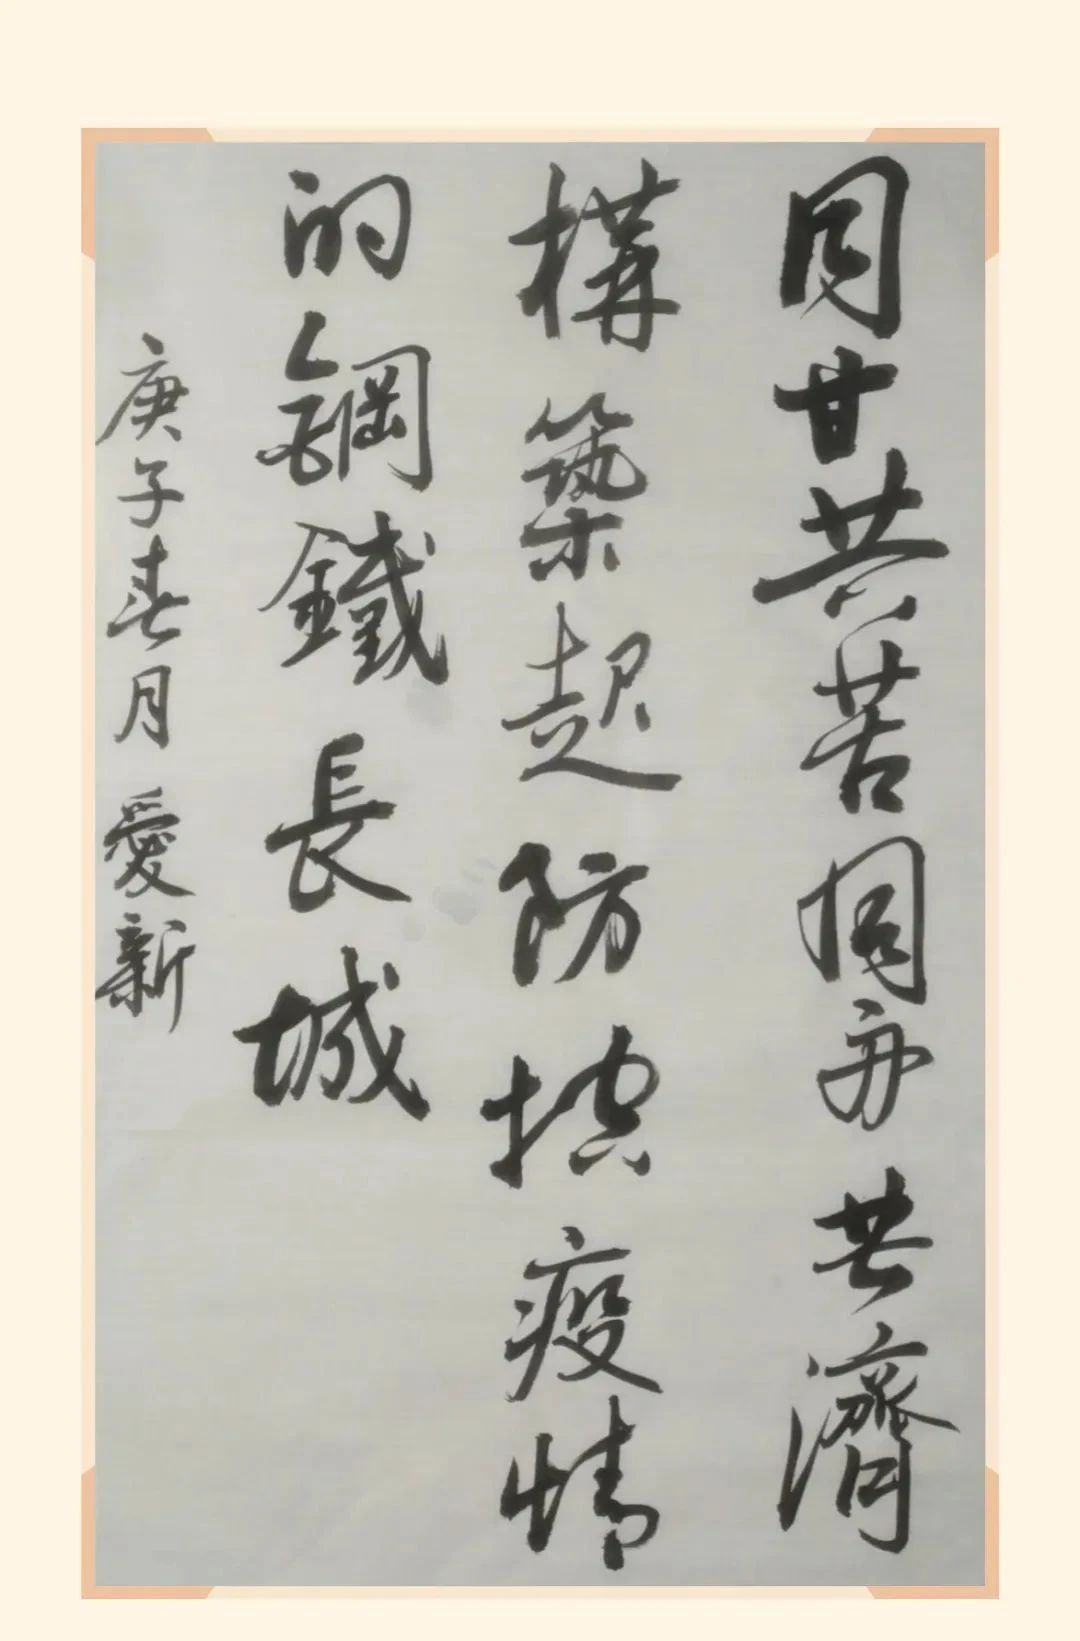 同甘共苦同舟共濟
構築起防控疫情
的鋼鐵長城
庚子春月愛新